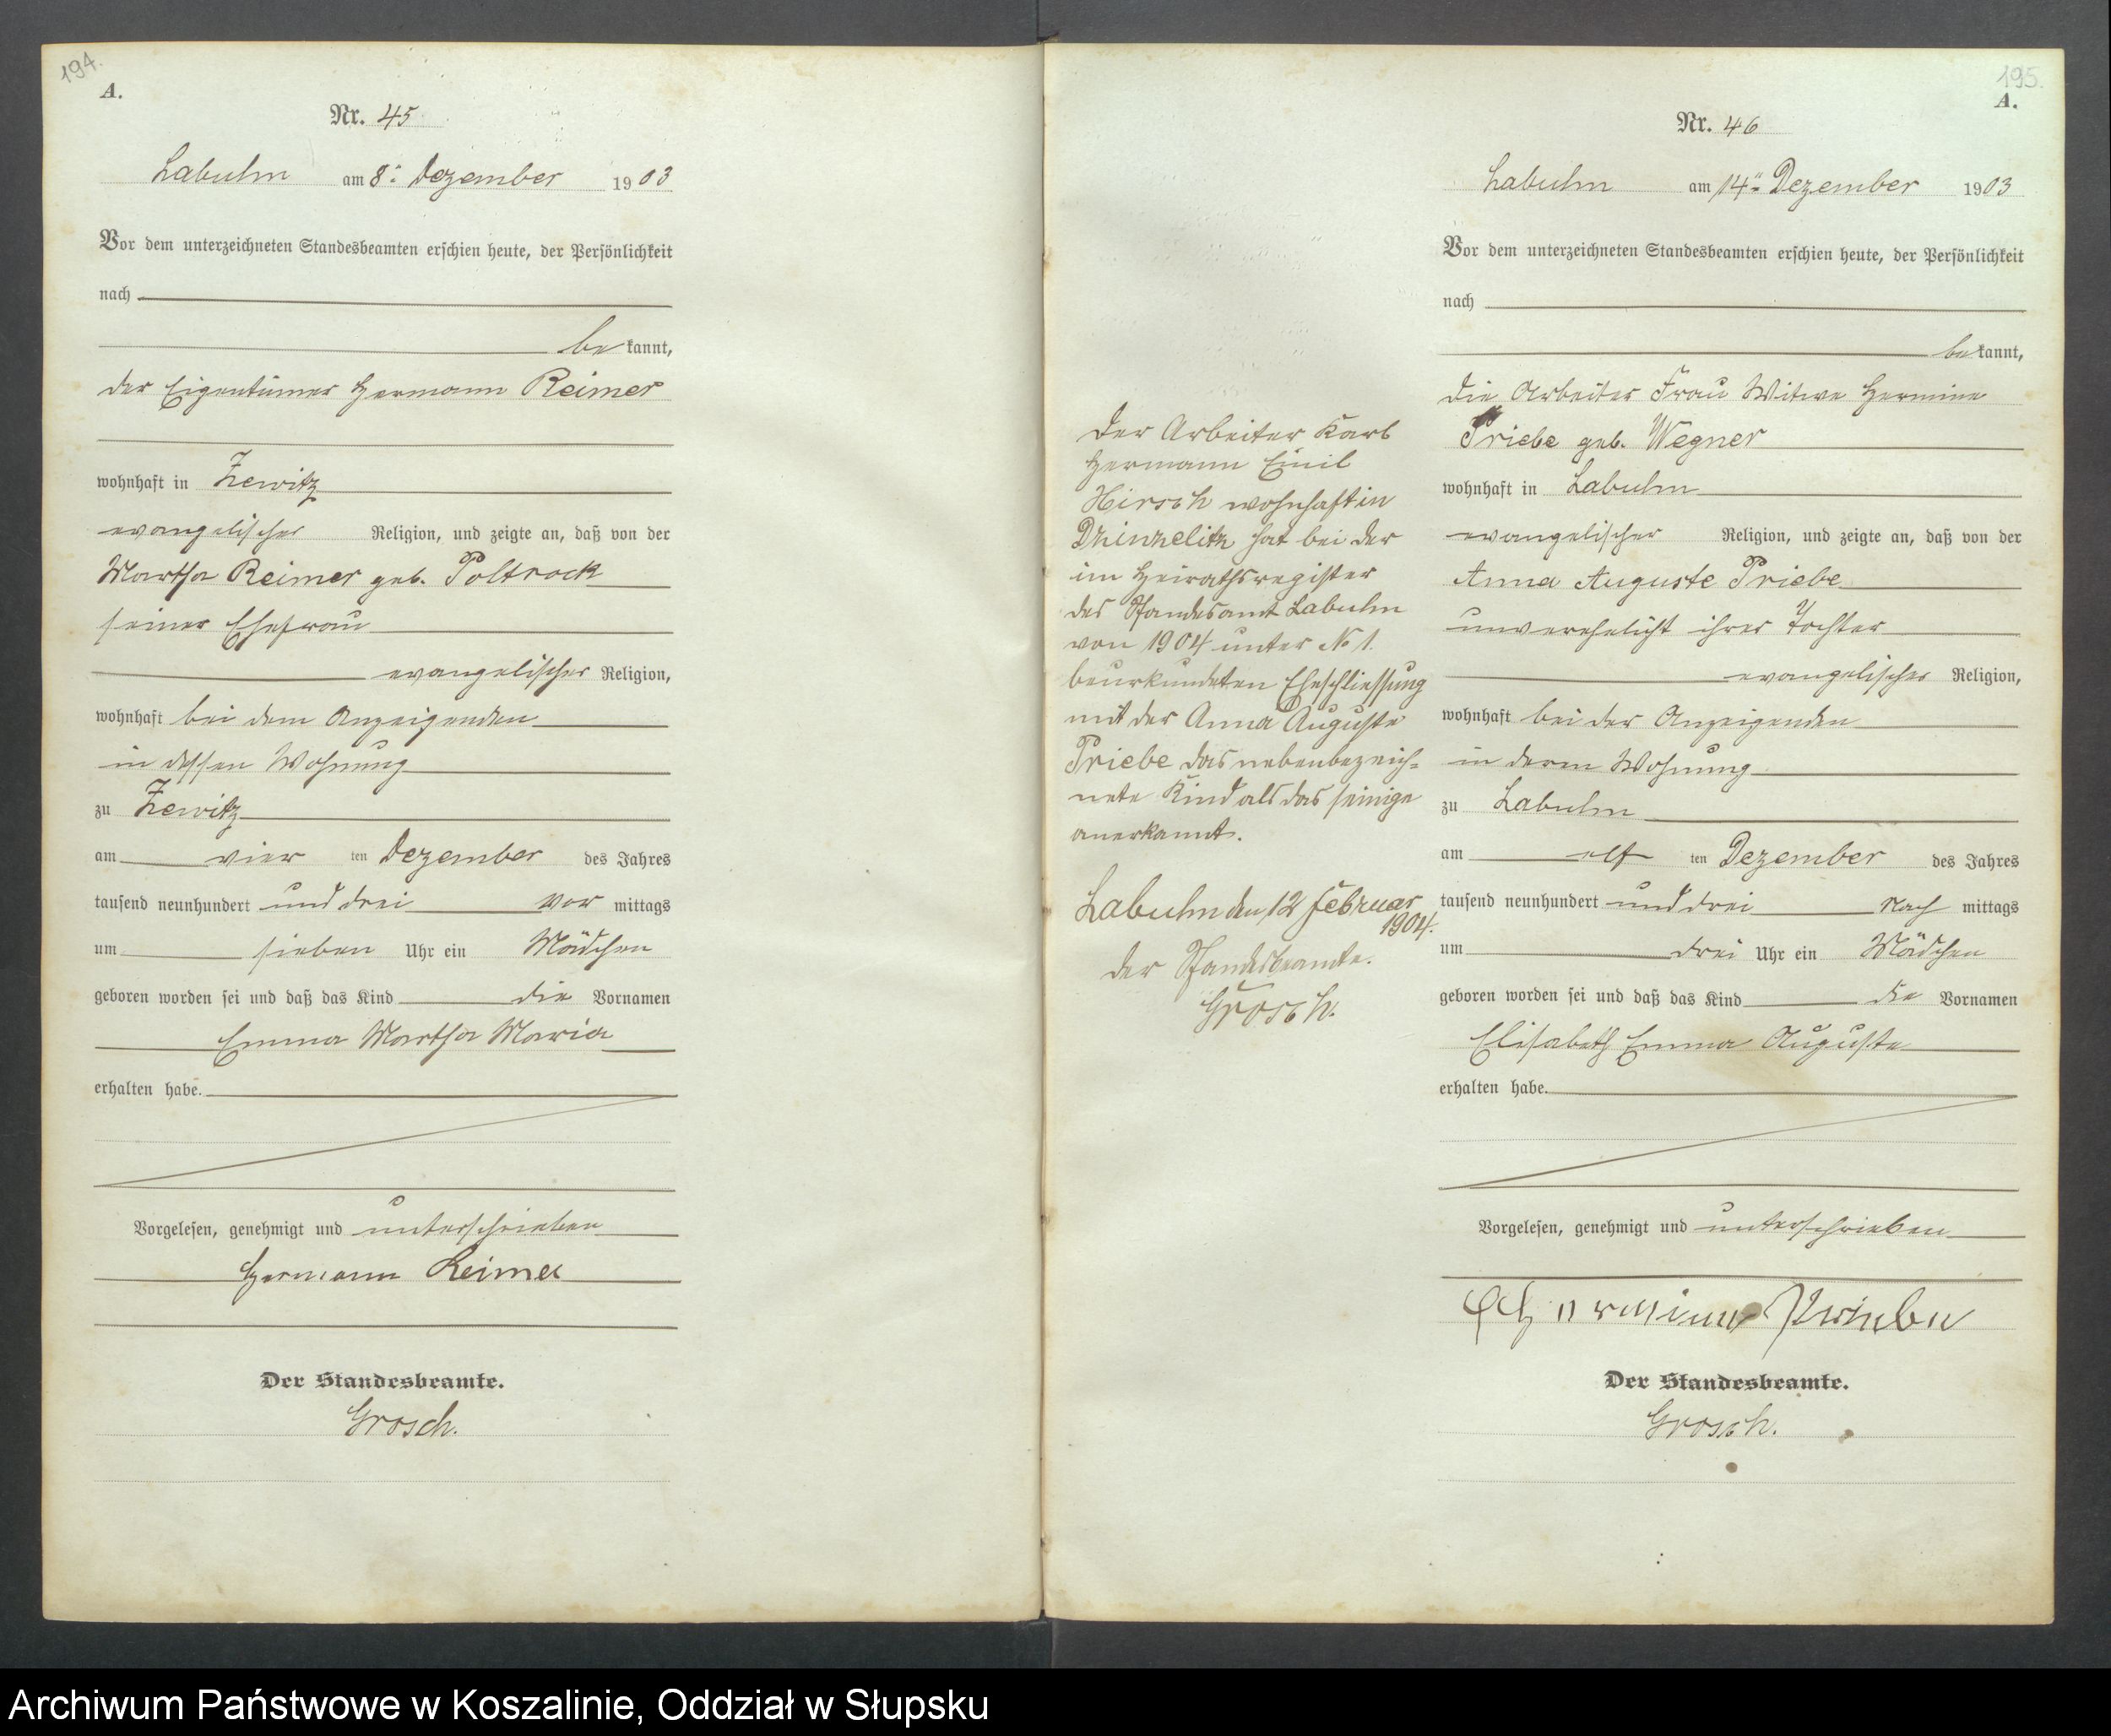 194.
A.
Nr. 45
Labuhn am 8ten Dezember 1903
Vor dem unterzeichneten Standesbeamten erschien heute, der Persönlichkeit
nach
be kannt,
der Eigentümer Hermann Reimer
wohnhaft in Zewitz
evangelischer Religion, und zeigte an, daß von der
Martha Reimer geb. Poltrock
seiner Ehefrau
evangelischer Religion,
wohnhaft bei dem Anzeigenden
in dessen Wohnung
zu Zewitz
am vier ten Dezember des Jahres
tausend neunhundert und drei vor mittags
um sieben Uhr ein Mädchen
geboren worden sei und daß das Kind die Vornamen
Emma Martha Maria
erhalten habe.
Vorgelesen, genehmigt und unterschrieben
Hermann Reimer
Der Standesbeamte.
Grosch.
Der Arbeiter Karl
Hermann Emil
Hirsch wohnhaft in
Dzinzelitz hat bei der
im Heirathsregister
des Standesamt Labuhn
von 1904 unter No 1.
beurkundeten Eheschliessung
mit der Anna Auguste
Priebe das nebenbezeich=
nete Kind als das seinige
anerkannt.
Labuhn den 12 Februar
1904.
der Standesbeamte.
Grosch.
195.
A.
Nr. 46
Labuhn am 14ten Dezember 1903
Vor dem unterzeichneten Standesbeamten erschien heute, der Persönlichkeit
nach
be kannt,
die Arbeiter Frau Witwe Hermine
Priebe geb. Wegner
wohnhaft in Labuhn
evangelischer Religion, und zeigte an, daß von der
Anna Auguste Priebe
unverehelicht ihrer Tochter
evangelischer Religion,
wohnhaft bei der Anzeigenden
in deren Wohnung
zu Labuhn
am elf ten Dezember des Jahres
tausend neunhundert und drei Nach mittags
um drei Uhr ein Mädchen
geboren worden sei und daß das Kind die Vornamen
Elisabeth Emma Auguste
erhalten habe.
Vorgelesen, genehmigt und unterschrieben
Hermine Priebe
Der Standesbeamte.
Grosch.
Archiwum Państwowe w Koszalinie, Oddział w Słupsku